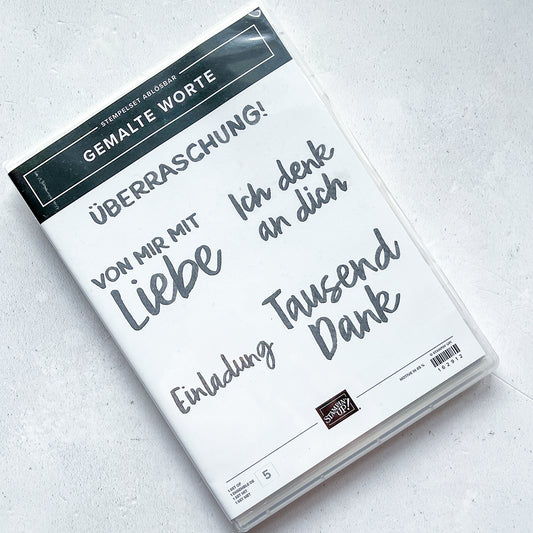 STEMPELSET ABLÖSBAR
GEMALTE WORTE
ÜBERRASCHUNG!
Ich denk
an dich
VON MIR MIT
Liebe
Tausend
Dank
Einladung
STAMPIN'
UP!
© STAMPIN' UP!
162912
5